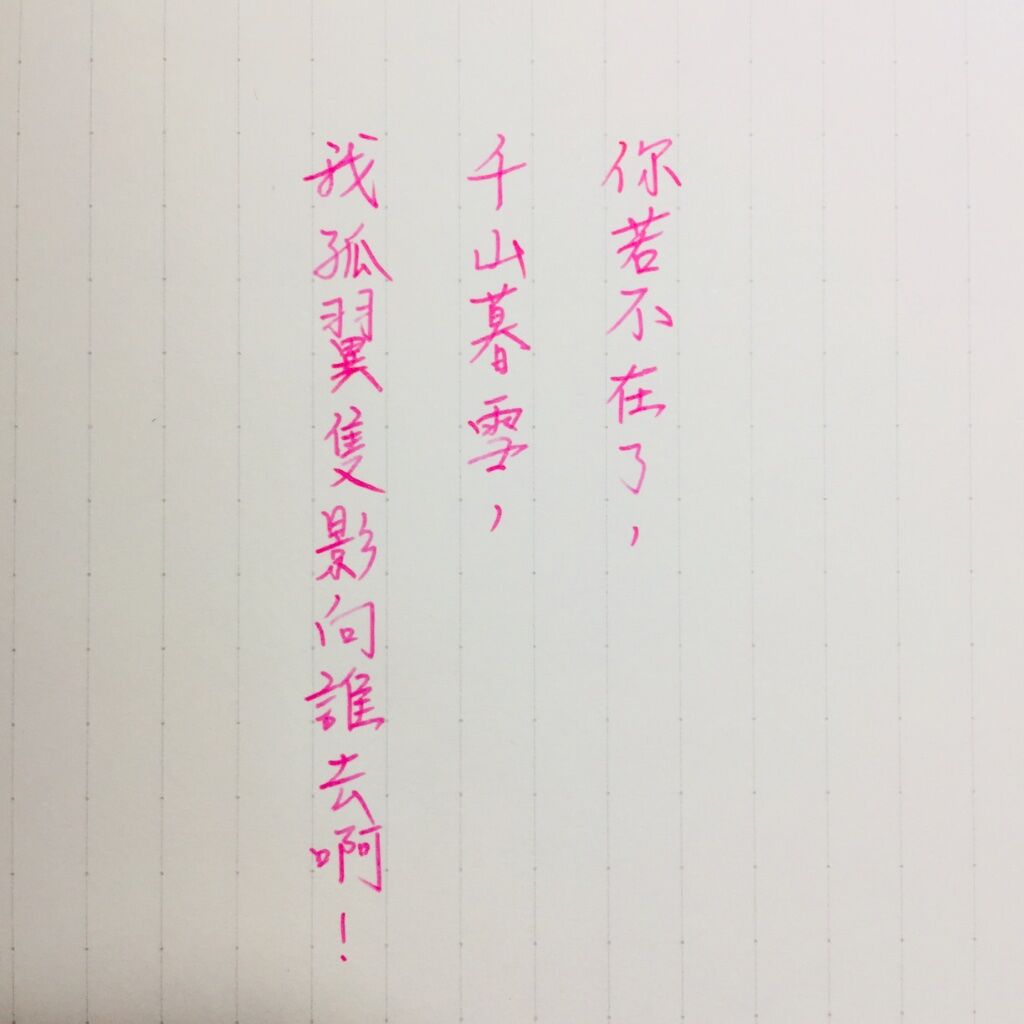 你若不在了，
千山暮雪，
我孤翼隻影向誰去啊！